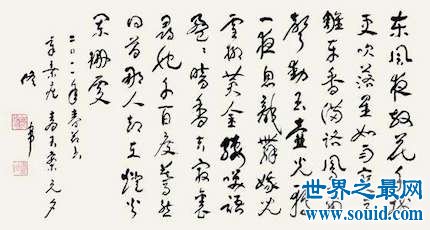 东风夜放花千树
更吹落星如雨宝马
雕车香满路凤箫
声动玉壶光转
一夜鱼龙舞蛾儿
雪柳黄金缕笑语
盈盈暗香去众里
寻他千百度蓦然
回首那人却在灯火
阑珊处
二〇一一年春节书
辛弃疾青玉案元夕
世界之最网
www.souid.com